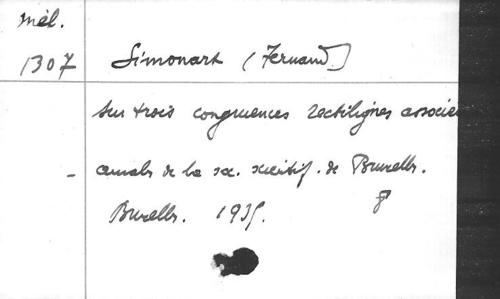 Mél.
1307
Simonart (Fernand)
Sur trois congruences rectilignes associé
-
Annales de la soc. scientif. de Bruxelles.
Bruxelles. 1935.
8